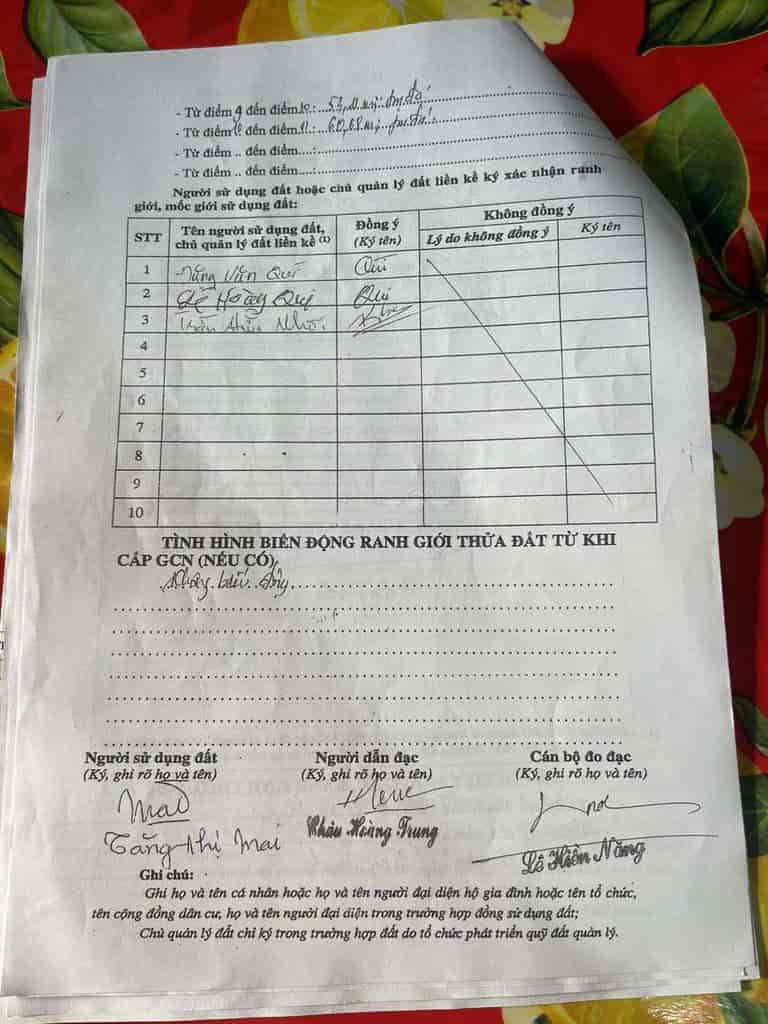 - Từ điểm 9 đến điểm 10:
- Từ điểm 10 đến điểm 11:
- Từ điểm .. đến điểm....:
- Từ điểm .. đến điểm....:
Người sử dụng đất hoặc chủ quản lý đất liền kề ký xác nhận ranh
giới, mốc giới sử dụng đất:
STT Tên người sử dụng đất, chủ quản lý đất liền kề (1) Đồng ý (Ký tên) Không đồng ý
Lý do không đồng ý Ký tên
1 Văn Quí Quí
2 Lê Hoàng Qui Qui
3
4
5
6
7
8
9
10
TÌNH HÌNH BIẾN ĐỘNG RANH GIỚI THỬA ĐẤT TỪ KHI
CẤP GCN (NẾU CÓ)
Không biến động
Người sử dụng đất Người dẫn đạc Cán bộ đo đạc
(Ký, ghi rõ họ và tên) (Ký, ghi rõ họ và tên) (Ký, ghi rõ họ và tên)
Mai
Tăng Thị Mai Châu Hoàng Trung Lê Hiền Năng
Ghi chú:
Ghi họ và tên cá nhân hoặc họ và tên người đại diện hộ gia đình hoặc tên tổ chức,
tên cộng đồng dân cư, họ và tên người đại diện trong trường hợp đồng sử dụng đất;
Chủ quản lý đất chỉ ký trong trường hợp đất do tổ chức phát triển quỹ đất quản lý.